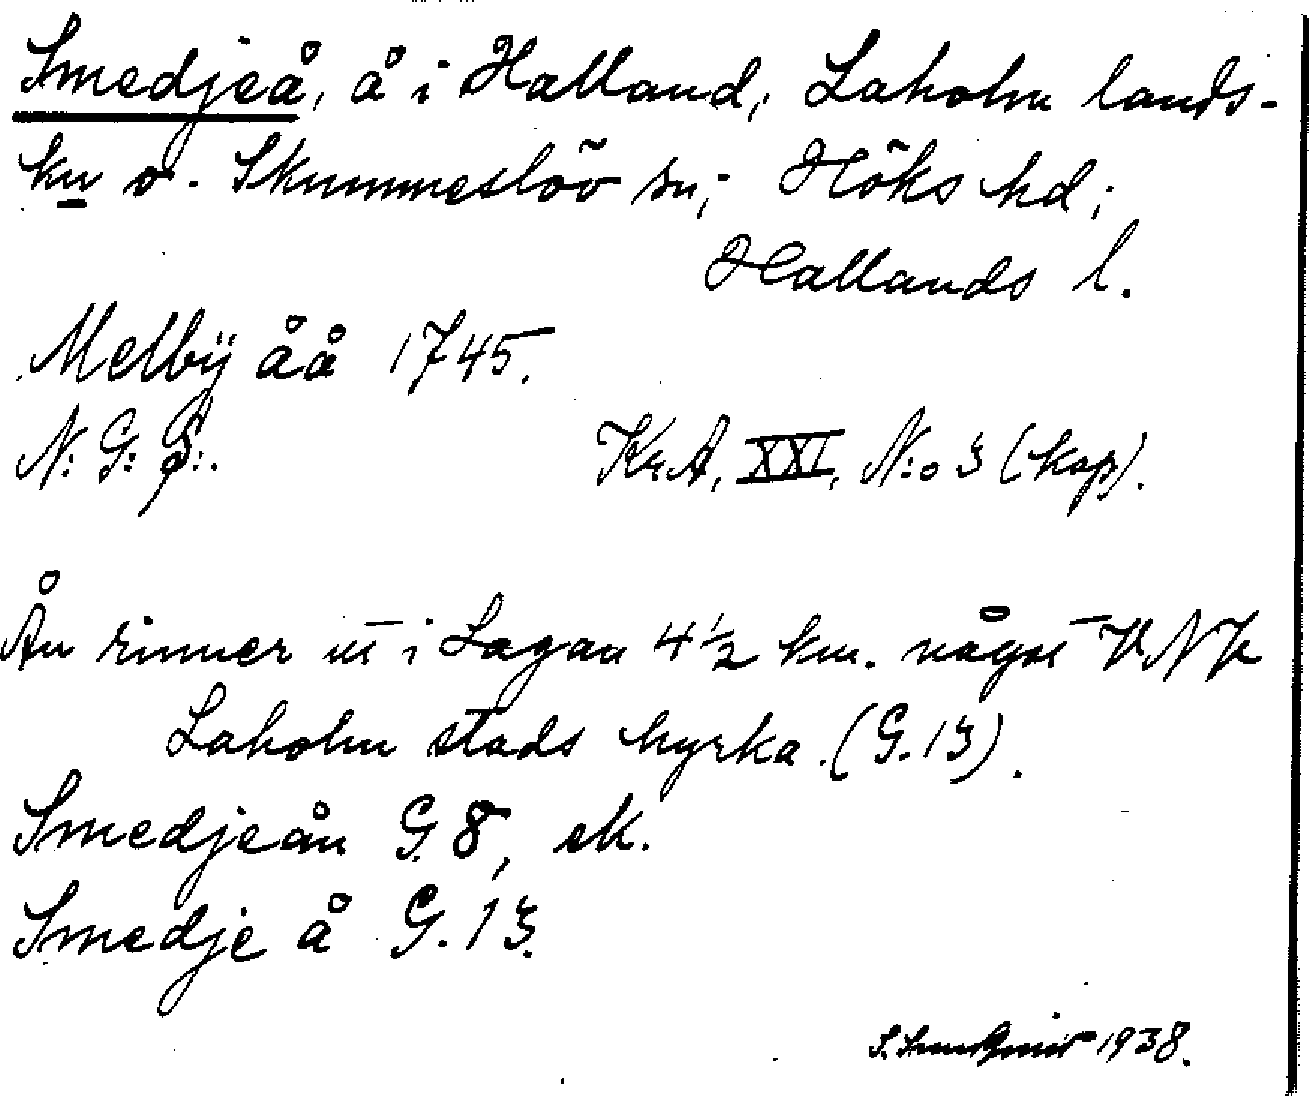 Smedjeå, å i Halland, Laholm lands-
ku o. Skummeslöv sn; Höks hd;
Hallands l.
Melbÿ åå 1745.
N: G: S:.
KrA, XXI, N:o 3 (kop).
Ån rinner ut i Lagan 4½ km. något VNV
Laholm stads kyrka. (G.13).
Smedjeån G 8, ek.
Smedje å G. 13.
1938.